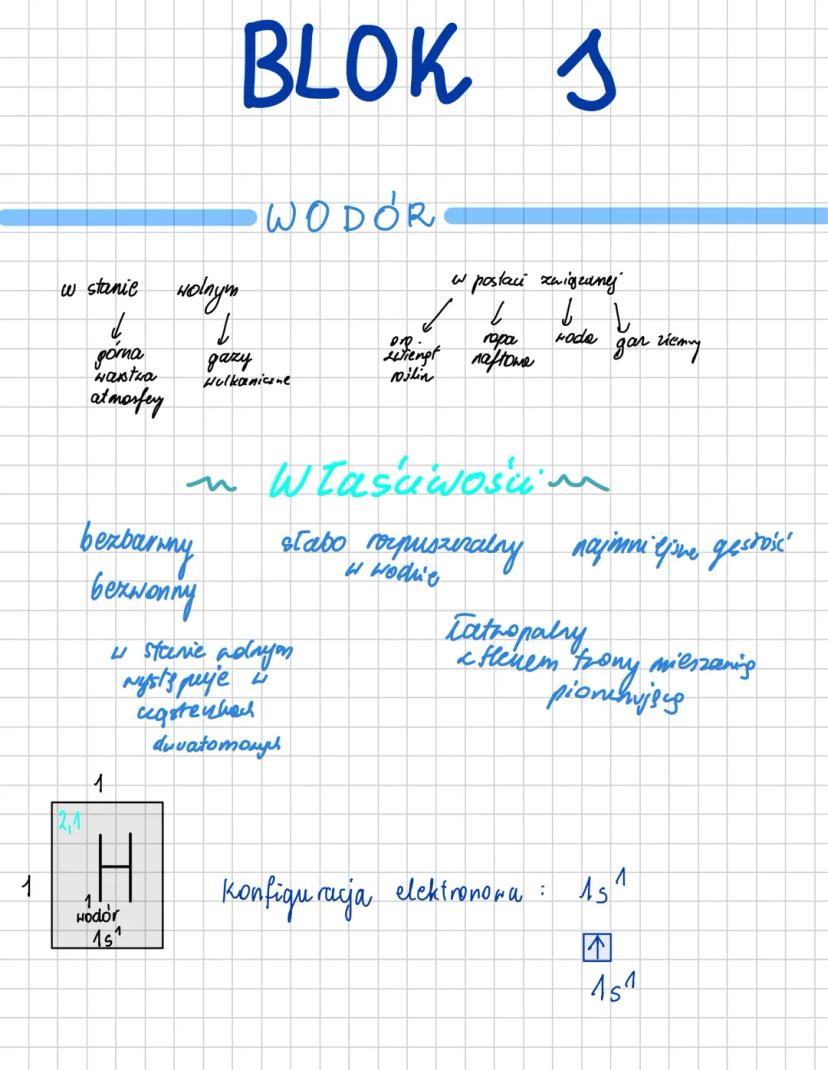 BLOK s
WODÓR
w stanie wolnym
w postaci związanej
górna
warstwa
atmosfery
gazy
wulkaniczne
org.
zwierząt
roślin
ropa
naftowa
woda
gaz ziemny
Właściwości
bezbarwny
bezwonny
słabo rozpuszczalny
w wodzie
najmniejsza gęstość
w stanie wolnym
występuje w
cząsteczkach
dwuatomowych
Łatwopalny
z tlenem tworzy mieszaninę
piorunującą
1
2,1
H
1
1
wodór
1s¹
Konfiguracja elektronowa : 1s¹
↑
1s¹